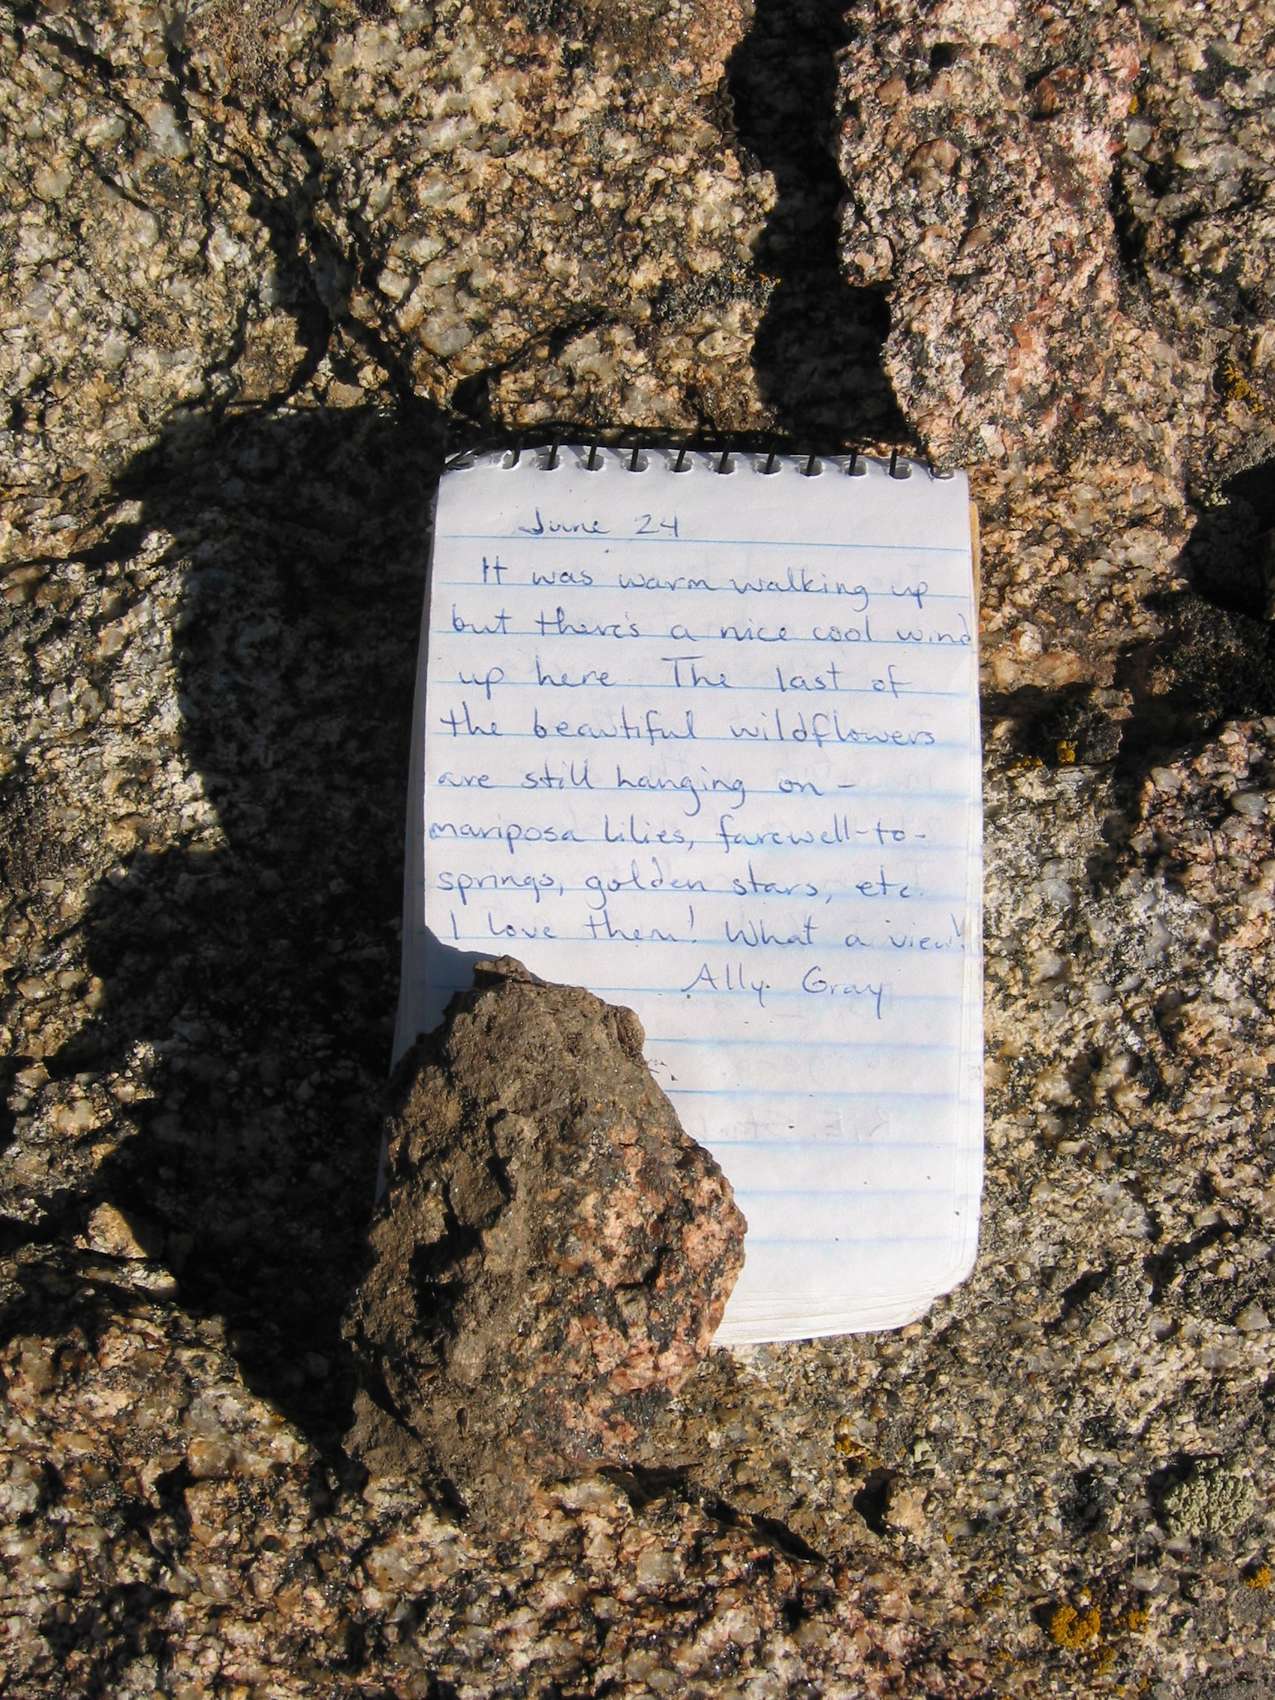 June 24
It was warm walking up
but there's a nice cool wind
up here. The last of
the beautiful wildflowers
are still hanging on -
mariposa lilies, farewell-to-
springs, golden stars, etc.
I love them! What a view!
Ally Gray